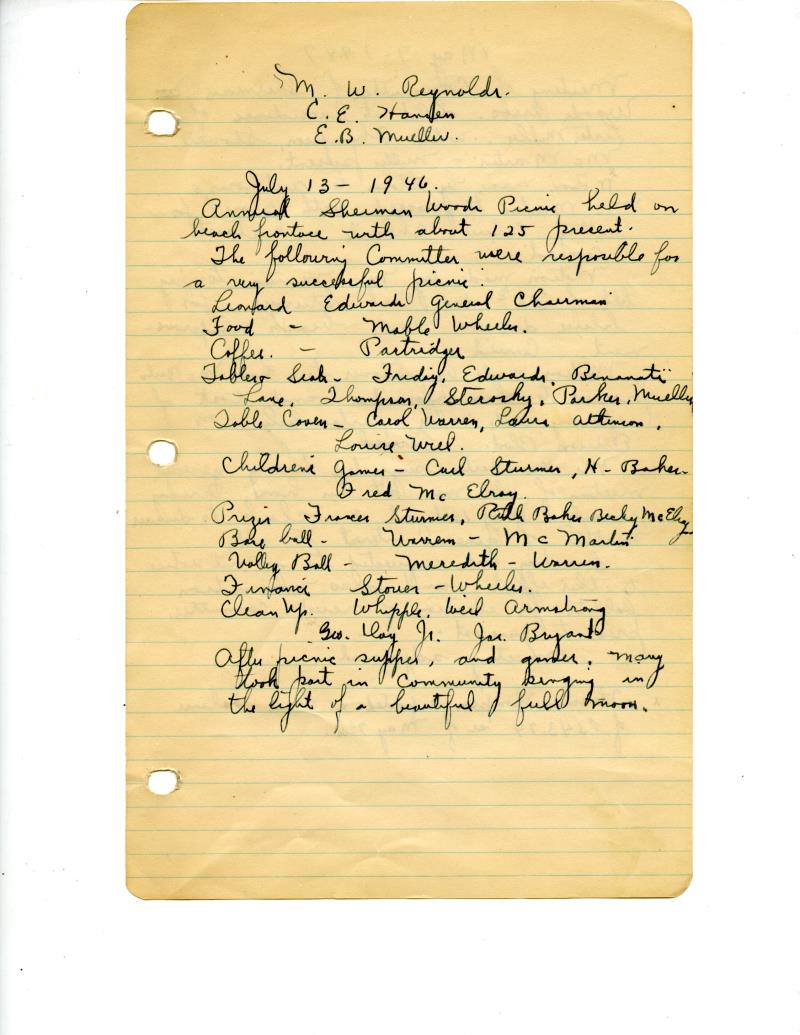 M. W. Reynolds.
C. E. Hansen
E. B. Mueller.
July 13 - 1946.
Annual Sherman Woods Picnic held on
beach frontace with about 125 present.
The following Committee were resposible for
a very successful picnic.
Leonard Edwards General Chairman
Food - Mable Wheeler.
Coffee. - Partridges
Tables & Seats - Friday, Edwards, Benanati
Lane, Thompson, Sterosky, Parker, Mueller
Table Cover - Carol Warren, Laura Atkinson,
Louise Weil.
Children's Games - Carl Sturmer, H - Baker -
Fred Mc Elroy.
Prizes Frances Sturmer, Ruth Baker Becky McElroy
Base ball - Warren - Mc Martin
Volley Ball - Meredith - Warren.
Finance Stover - Wheeler.
Clean Up. Whipple, Weil Armstrong
Geo. Hoy Jr. Jas. Bryant
After picnic supper, and games, many
took part in Community singing in
the light of a beautiful full moon.